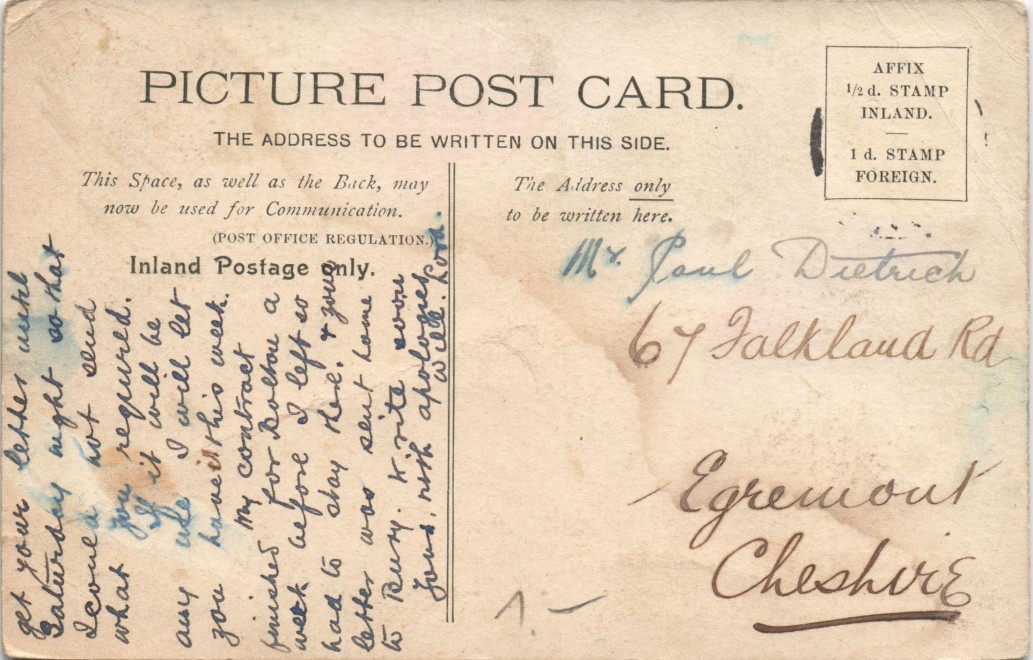 PICTURE POST CARD.
THE ADDRESS TO BE WRITTEN ON THIS SIDE.
AFFIX
1/2 d. STAMP
INLAND.
1 d. STAMP
FOREIGN.
This Space, as well as the Back, may
now be used for Communication.
(POST OFFICE REGULATION.)
Inland Postage only.
get your letter until
Saturday night so that
I could not send
what you required.
If it will be
any use I will let
you have it this week.
My contract
finished for Bolton a
week before I left so
had to stay here. & your
letter was sent home
to Bury. Write soon
Yours, with apologies
Will. Lord.
The Address only
to be written here.
Mr. Paul Dietrich
67 Falkland Rd
Egremont
Cheshire
1.-